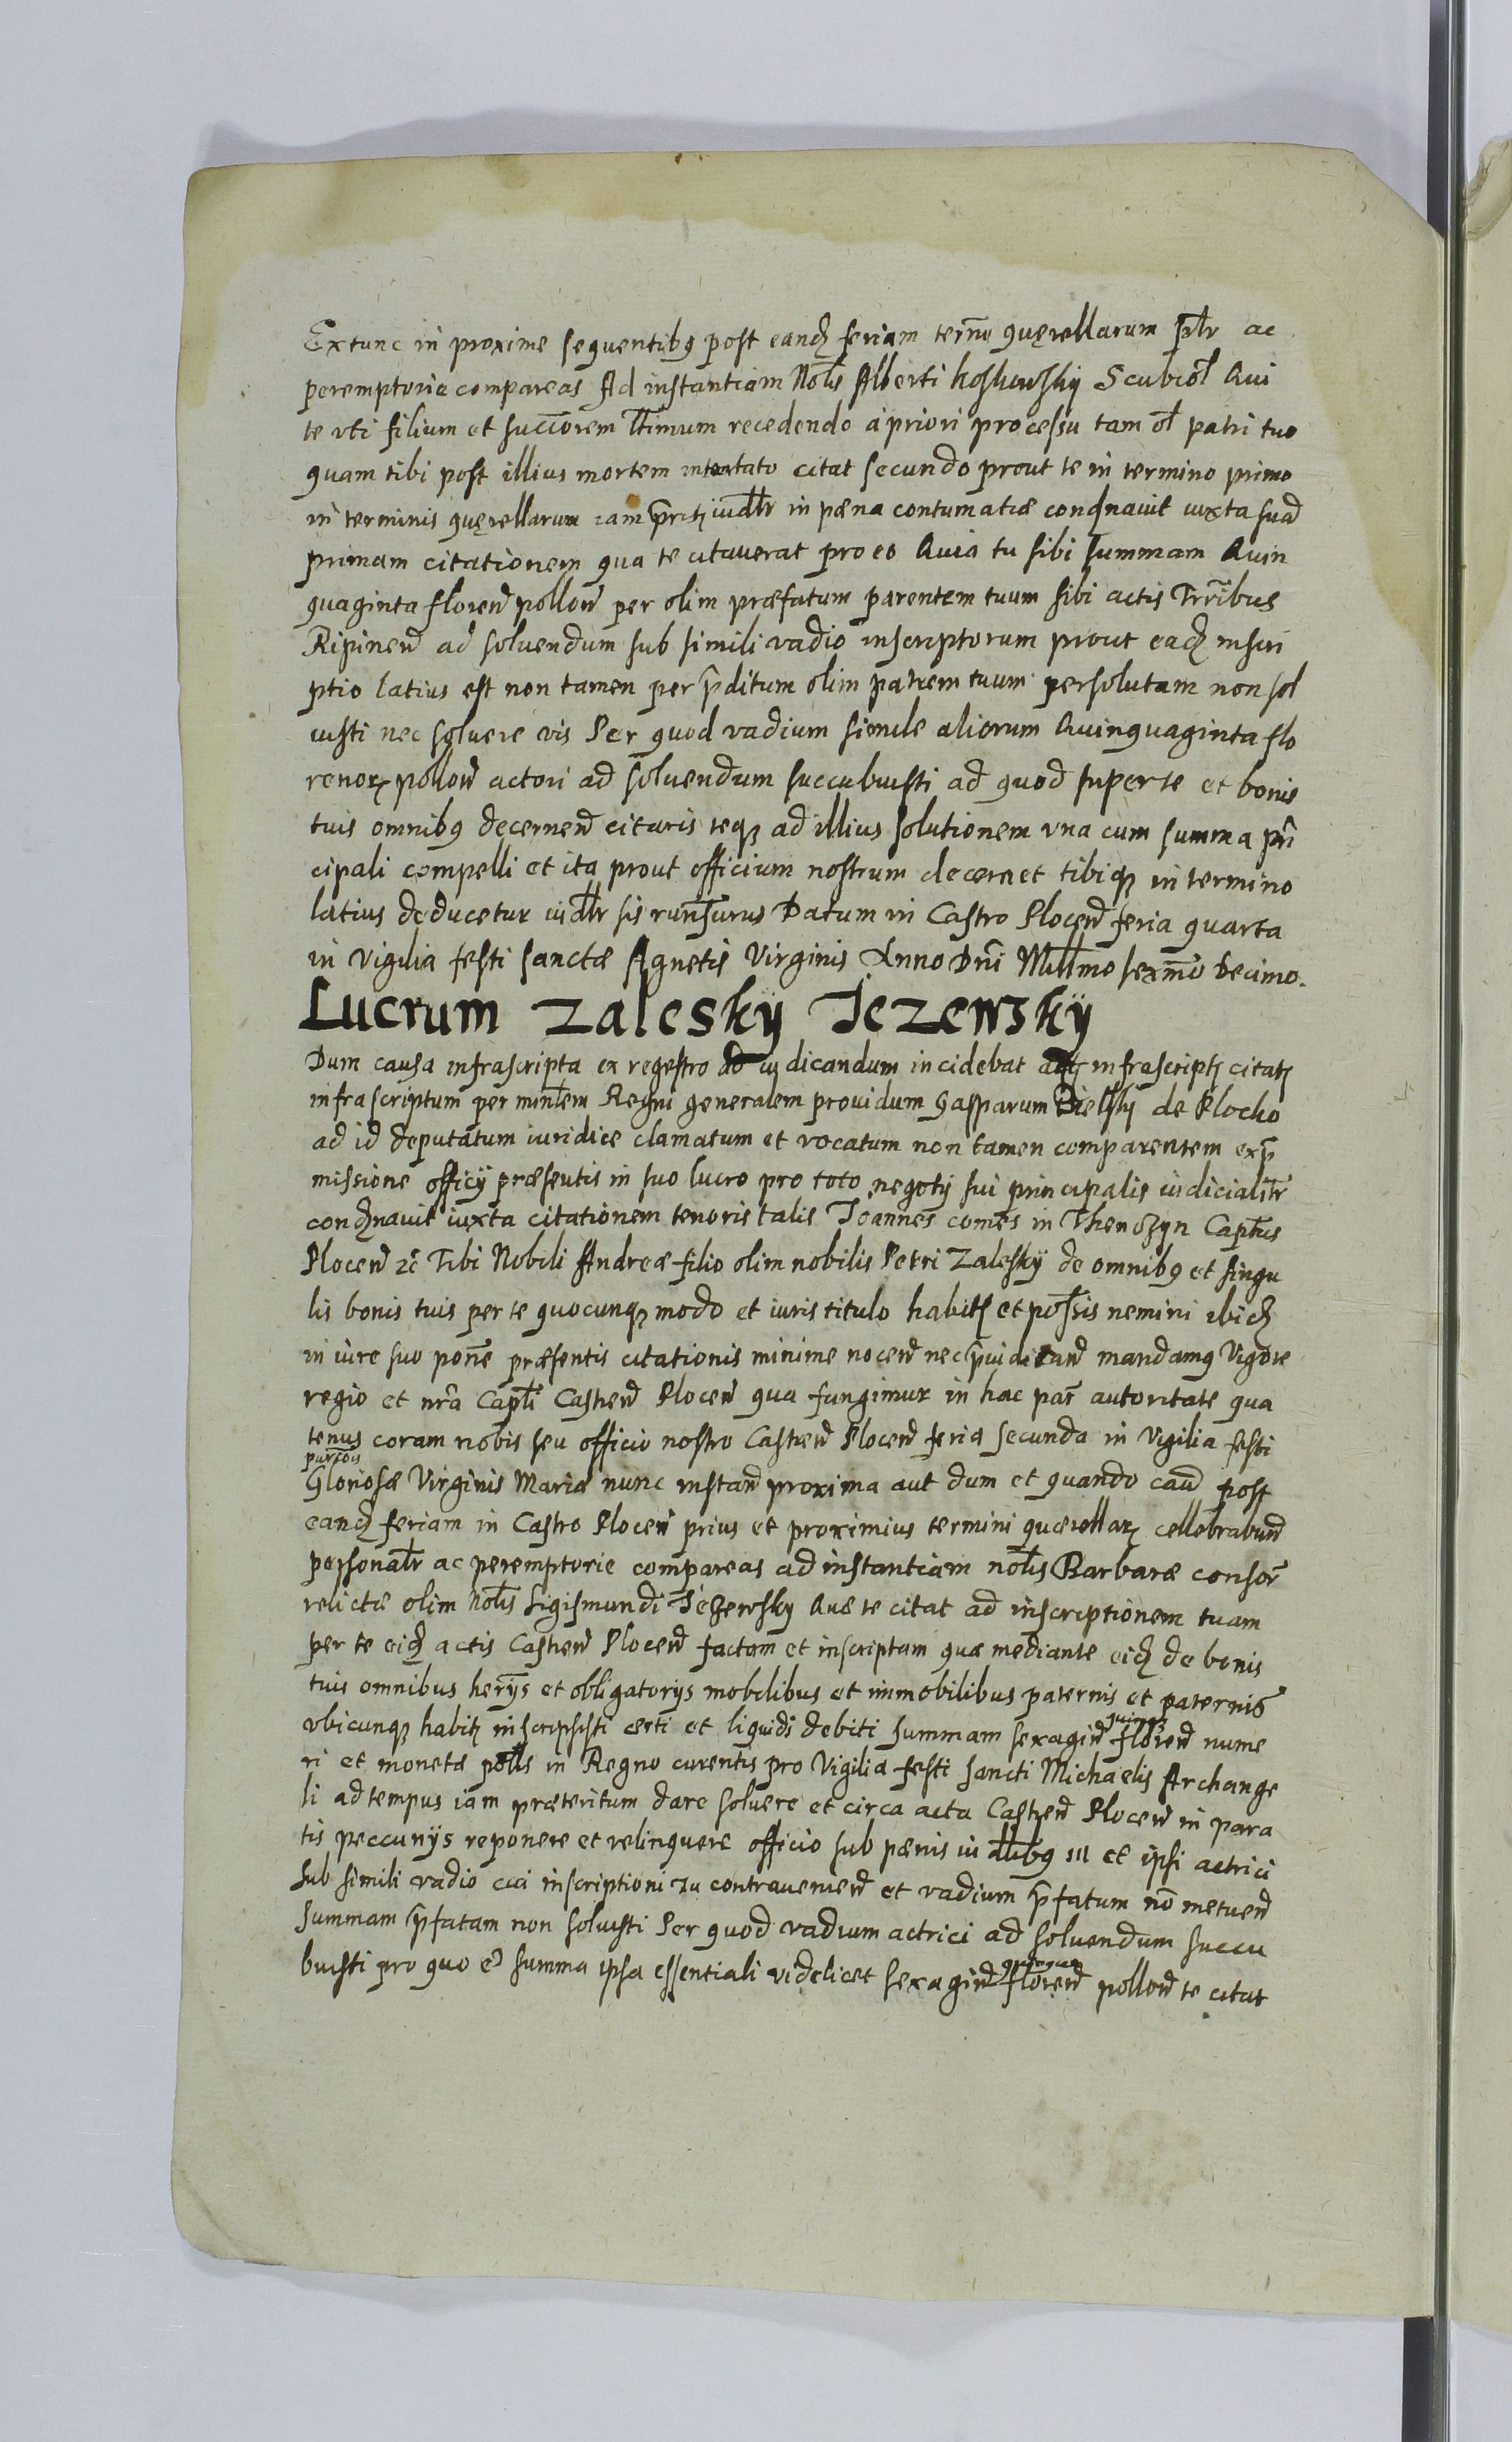 Extunc in proxime sequentibꝫ post eandꝫ feriam termō quęrellarum ꝑlr ac
peremptorie compareas Ad instantiam Nolis Alberti Koskowsky Scubiol Qui
te vti filium et succorem ltimum recedendo a priori processu tam ol patri tuo
quam tibi post illius mortem intentato citat secundo prout te in termino primo
in terminis quęrellarum iam pritꝫ iudlr in pæna contumatiæ condnauit iuxta suā
primam citationem qua te citauerat pro eo Quia tu sibi summam Quin
quaginta floren pollon per olim præfatum parentem tuum sibi actis Trribus
Ripinen ad soluendum sub simili vadio inscriptorum prout eadꝫ inscri
ptio latius est non tamen per prditum olim patrem tuum persolutam non sol
uisti nec soluere vis Per quod vadium simile aliorum Quinquaginta flo
renorꝫ pollon actori ad soluendum succubuisti ad quod super te et bonis
tuis omnibꝫ decernend citaris teqꝫ ad illius solutionem vna cum summa prī
cipali compelli et ita prout officium nostrum decernet tibiqꝫ in termino
latius deducetur iudlr sis runsurus Datum in Castro Plocen feria quarta
in vigilia festi sanctæ Agnetis Virginis Anno Dni Millmo sexmo Decimo.
Lucrum Zalesky Jezewsky
Dum causa infrascripta ex regestro ad iudicandum incidebat actꝫ infrascriptꝫ citatꝫ
infrascriptum per minlem Regni generalem prouidum Gasparum Bielsky de Plocko
ad id deputatum iuridice clamatum et vocatum non tamen comparentem exp
missione officij præsentis in suo lucro pro toto negotij sui principalis iudicialitr
condnauit iuxta citationem tenoris talis Joannes comes in Thenczyn Captus
Plocen zc Tibi Nobili Andreæ filio olim nobilis Petri Zalesky de omnibꝫ et singu
lis bonis tuis per te quocunqꝫ modo et iuris titulo habitꝫ et possis nemini ibidꝫ
in iure suo pone præsentis citationis minime nocen nec priudicand mandamꝫ Vigore
regio et nra Capli Castren Plocen qua fungimur in hac par autoritate qua
tenus coram nobis seu officio nostro Castren Plocen feria secunda in Vigilia festi
purcois
Gloriosæ Virginis Mariæ nunc instan proxima aut dum et quando caū post
eandꝫ feriam in Castro Plocen prius et proximius termini quærellarꝫ cellebrabunt
personalr ac peremptorie compareas ad instantiam nolis Barbaræ consor
relictæ olim Nolis Sigismundi Jezewsky Quæ te citat ad inscriptionem tuam
per te eidꝫ actis Castren Plocen factam et inscriptam quæ mediante eidꝫ de bonis
tuis omnibus herijs et obligatorijs mobilibus et immobilibus paternis et paternis
vbicunqꝫ habitꝫ inscripsisti certi et liquidi debiti summam sexagin floren nume
ri et monetæ polls in Regno curentis pro Vigilia festi sancti Michaelis Archange
li ad tempus iam præteritum dare soluere et circa acta Castren Plocen in para
tis peccunijs reponere et relinquere officio sub pænis iudlibꝫ III et ipsi actrici
sub simili vadio cui inscriptioni tu contraueniend et vadium prfatum no metuend
summam prfatam non soluisti Per quod vadium actrici ad soluendum succu
quinque
buisti pro quo et summa ipsa essentiali videlicet sexagin floren pollon te citat